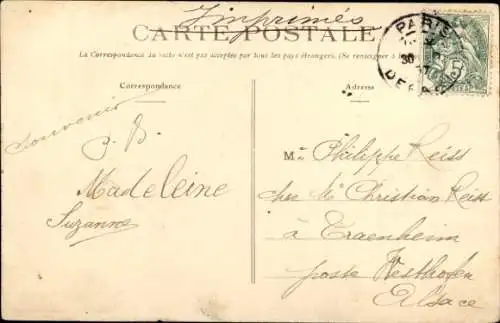 Imprimés
CARTE POSTALE
La Correspondance au recto n'est pas acceptée par tous les pays étrangers. (Se renseigner à la
PARIS
30
DEPART
5
Correspondance
Adresse
Souvenir
J. B.
Madeleine
Suzanne
M. Philippe Reiss
chez Mr Christian Reiss
à Traenheim
poste Westhofen
Alsace